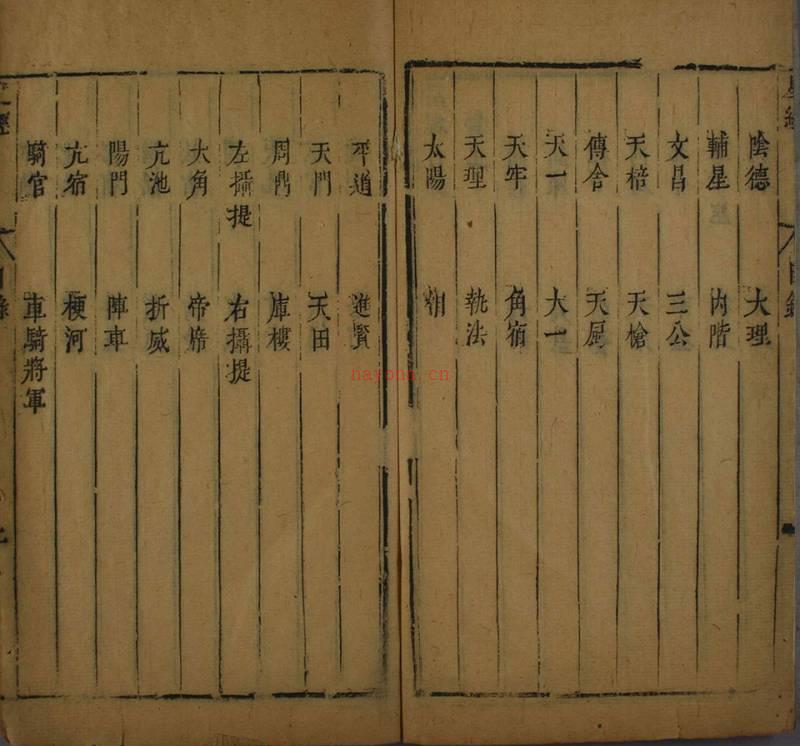 陰德 大理
輔星 內階
文昌 三公
天棓 天槍
傳舍 天厨
天一 大一
天牢 角宿
天理 執法
太陽 相
平道 進賢
天門 天田
周鼎 庫樓
左攝提 右攝提
大角 帝席
亢池 折威
陽門 陣車
亢宿 梗河
騎官 車騎將軍
星經 目錄
hayohn.cn